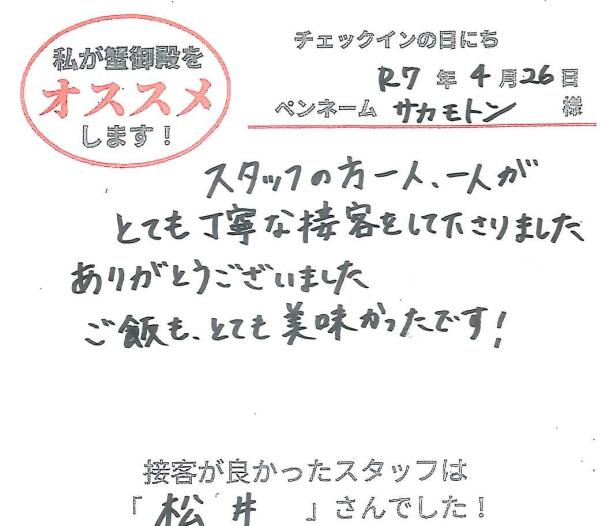 私が蟹御殿を
オススメ
します！
チェックインの日にち
R7 年 4 月 26 日
ペンネーム サカモトン 様
スタッフの方一人、一人が
とても丁寧な接客をして下さりました
ありがとうございました
ご飯も、とても美味かったです！
接客が良かったスタッフは
「 松井 」さんでした！